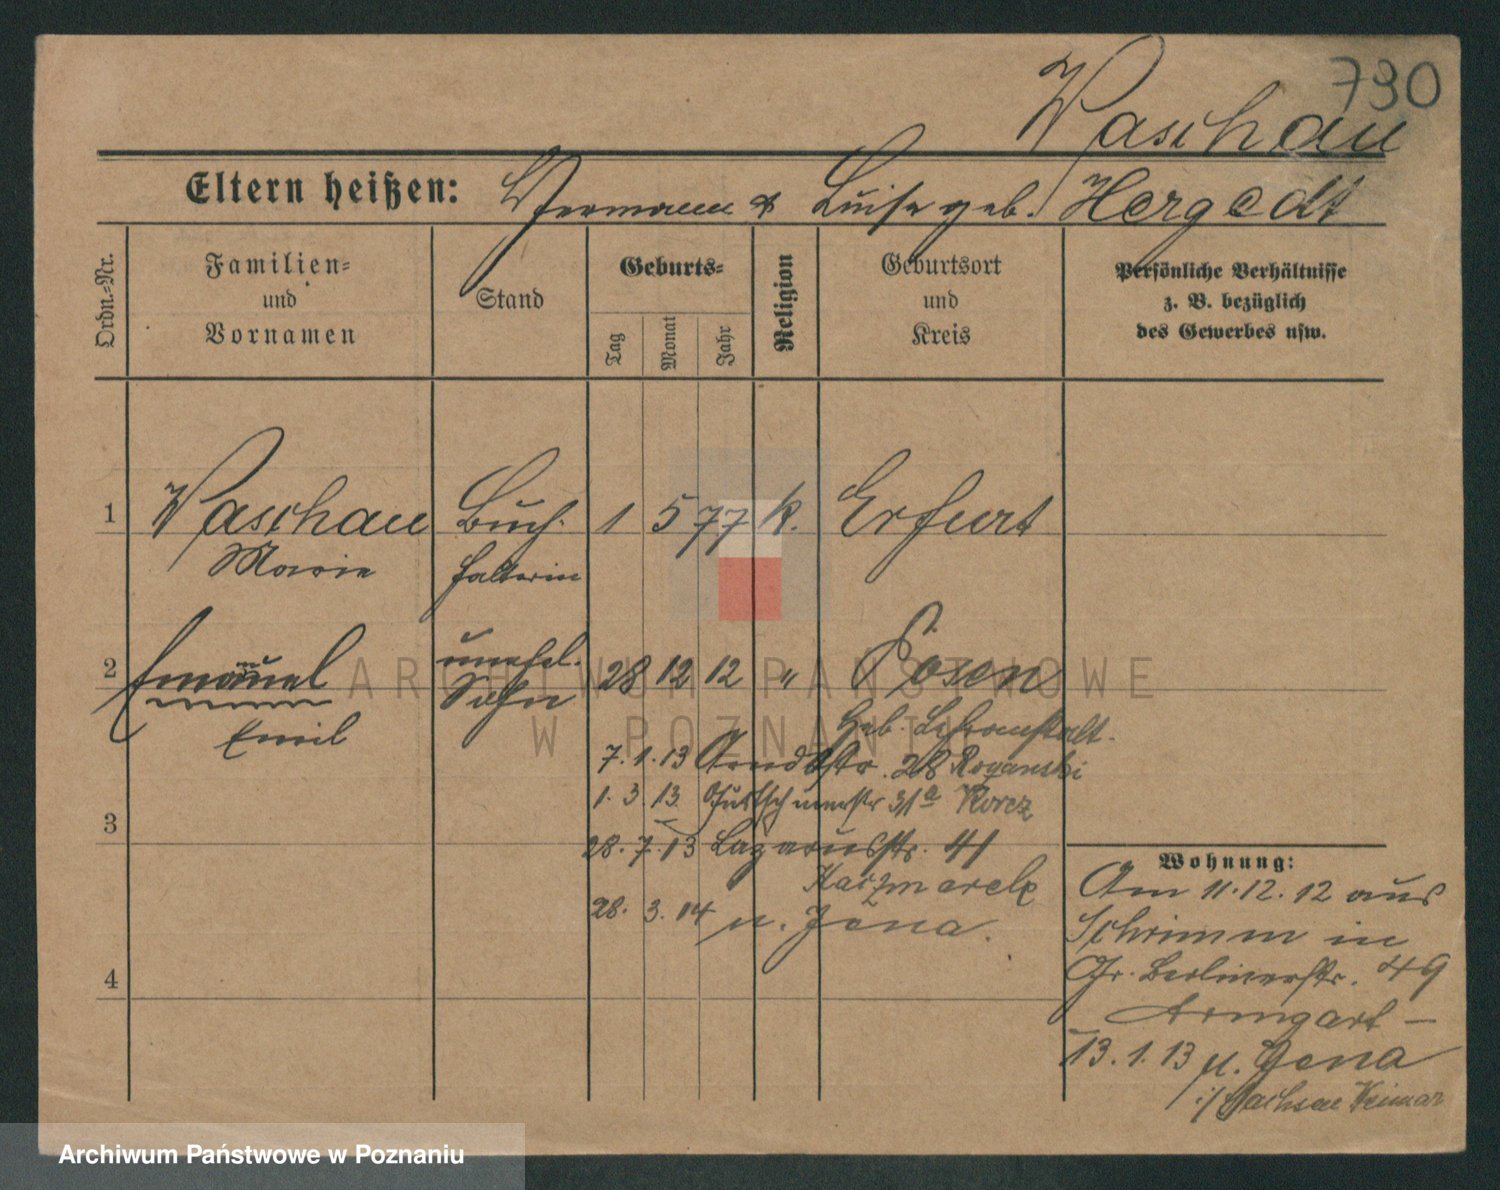 790
Waschau
Eltern heißen: Hermann & Luise geb. Hergedt
Ordn.-Nr.
Familien-
und
Vornamen
Stand
Geburts-
Tag
Monat
Jahr
Religion
Geburtsort
und
Kreis
Persönliche Verhältnisse
z. B. bezüglich
des Gewerbes usw.
1 Waschau Buch- 1 5 77 k. Erfurt
Marie halterin
2 Emanuel unehel. 28 12 12 " Posen
Emil Sohn
Geb. Lehranstalt.
7.1.13 Arndtstr. 28 Roganski
1.3.13 31a Korcz
3
28.7.13 Lazarusstr. 41
Kaczmarek
28.3.14 n. Jena.
4
Wohnung:
Am 11.12.12 aus
Schrimm in
Gr. Berlinerstr. 49
Armgart –
13.1.13 n. Jena
i/Sachsen Weimar
ARCHIWUM PAŃSTWOWE
W POZNANIU
Archiwum Państwowe w Poznaniu